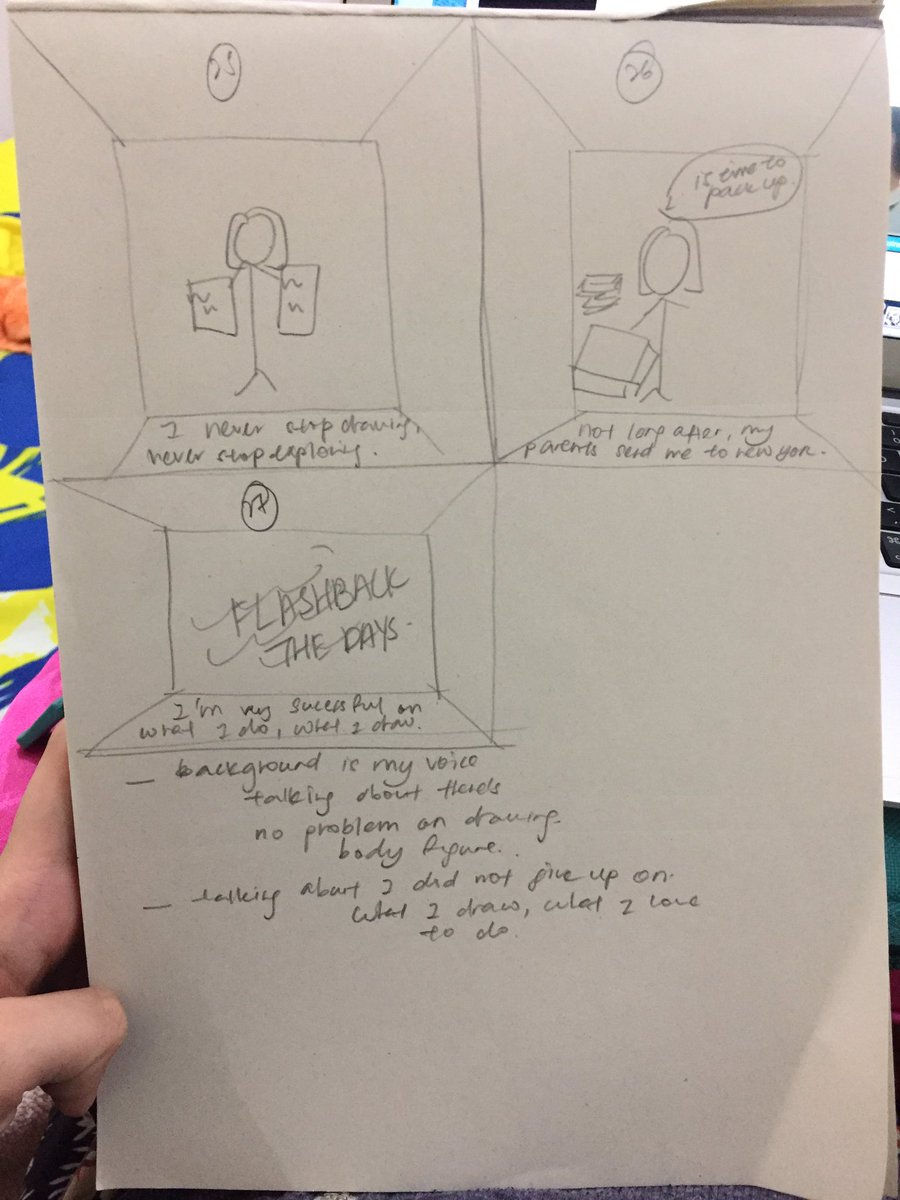 25
I never stop drawing,
never stop exploring.
26
is time to
pack up.
not long after, my
parents send me to new yor.
27
FLASHBACK
THE DAYS.
I'm very successful on
what I do, what I draw.
— background is my voice
talking about there's
no problem on drawing
body figure.
— talking about I did not give up on
what I draw, what I love
to do.